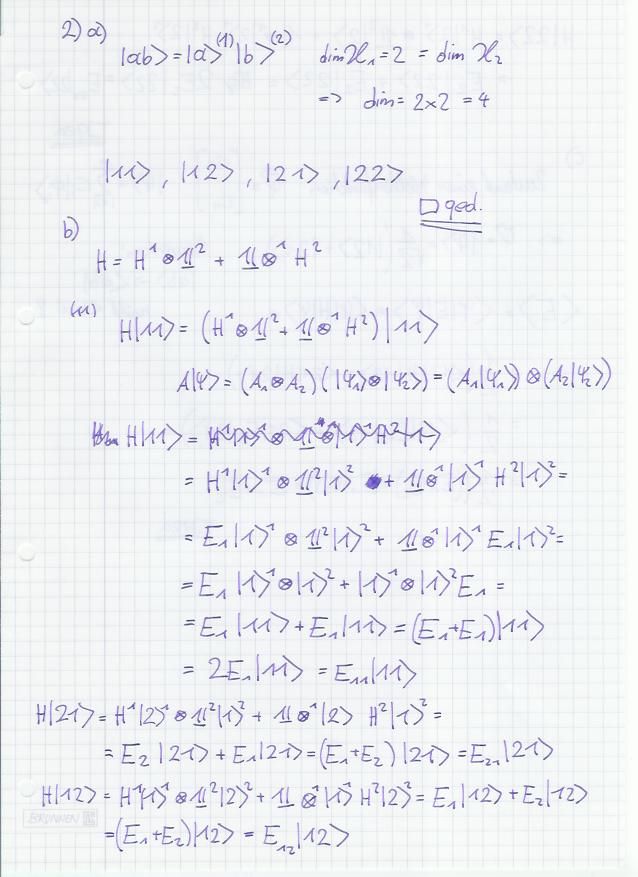 2) a)
|ab> = |a>⁽¹⁾ |b>⁽²⁾ dim ℋ₁ = 2 = dim ℋ₂
=> dim = 2×2 = 4
|11> , |12> , |21> , |22>
□ qed.
b)
H = H¹ ⊗ 𝟙² + 𝟙 ⊗¹ H²
(11)
H|11> = (H¹ ⊗ 𝟙² + 𝟙 ⊗¹ H²) |11>
A|Ψ> = (A₁ ⊗ A₂) (|Ψ₁> ⊗ |Ψ₂>) = (A₁|Ψ₁>) ⊗ (A₂|Ψ₂>)
H|11> =
= H¹|1>¹ ⊗ 𝟙²|1>² + 𝟙 ⊗¹ |1>¹ H²|1>² =
= E₁|1>¹ ⊗ 𝟙²|1>² + 𝟙 ⊗¹ |1>¹ E₁|1>² =
= E₁ |1>¹ ⊗ |1>² + |1>¹ ⊗ |1>² E₁ =
= E₁ |11> + E₁ |11> = (E₁+E₁) |11>
= 2E₁ |11> = E₁₁ |11>
H|21> = H¹|2>¹ ⊗ 𝟙²|1>² + 𝟙 ⊗¹ |2> H²|1>² =
= E₂ |21> + E₁ |21> = (E₁+E₂) |21> = E₂₁ |21>
H|12> = H¹|1>¹ ⊗ 𝟙²|2>² + 𝟙 ⊗¹ |1>¹ H²|2>² = E₁ |12> + E₂ |12>
= (E₁+E₂) |12> = E₁₂ |12>
BRUNNEN